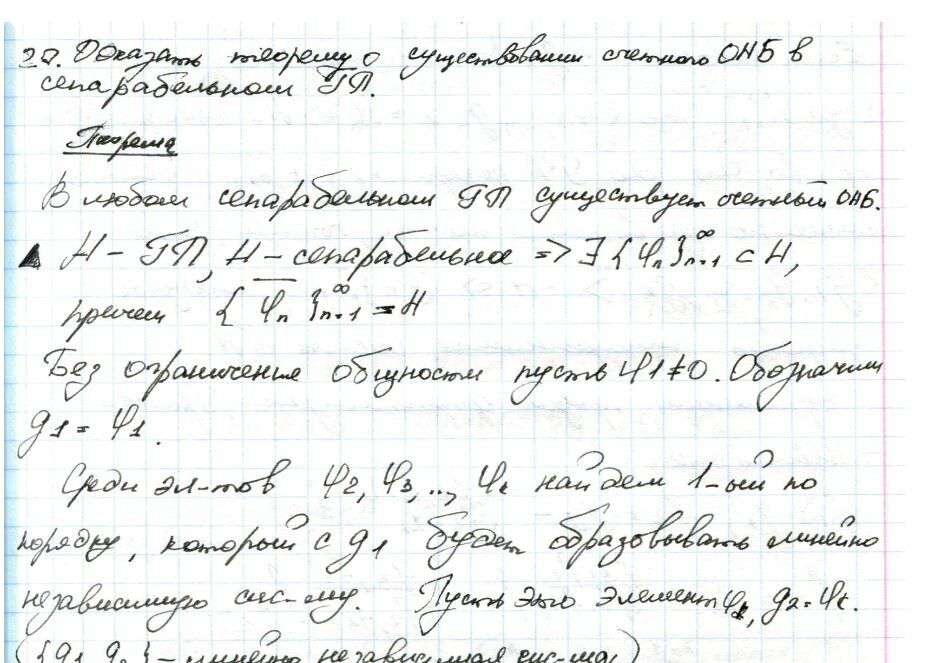 27. Доказать теорему о существовании счетного ОНБ в
сепарабельном ГП.
Теорема
В любом сепарабельном ГП существует счетный ОНБ.
▲ H – ГП, H – сепарабельное => ∃ {φₙ}ₙ₌₁^∞ ⊂ H,
причем {φₙ}ₙ₌₁^∞ = H
Без ограничения общности пусть φ1≠0. Обозначим
g1 = φ1.
Среди эл-тов φ2, φ3, .., φk найдем 1-ый по
порядку, который с g1 будет образовывать линейно
независимую сис-му. Пусть это элемент φk, g2=φk.
({g1, g2} – линейно независимая сис-ма)